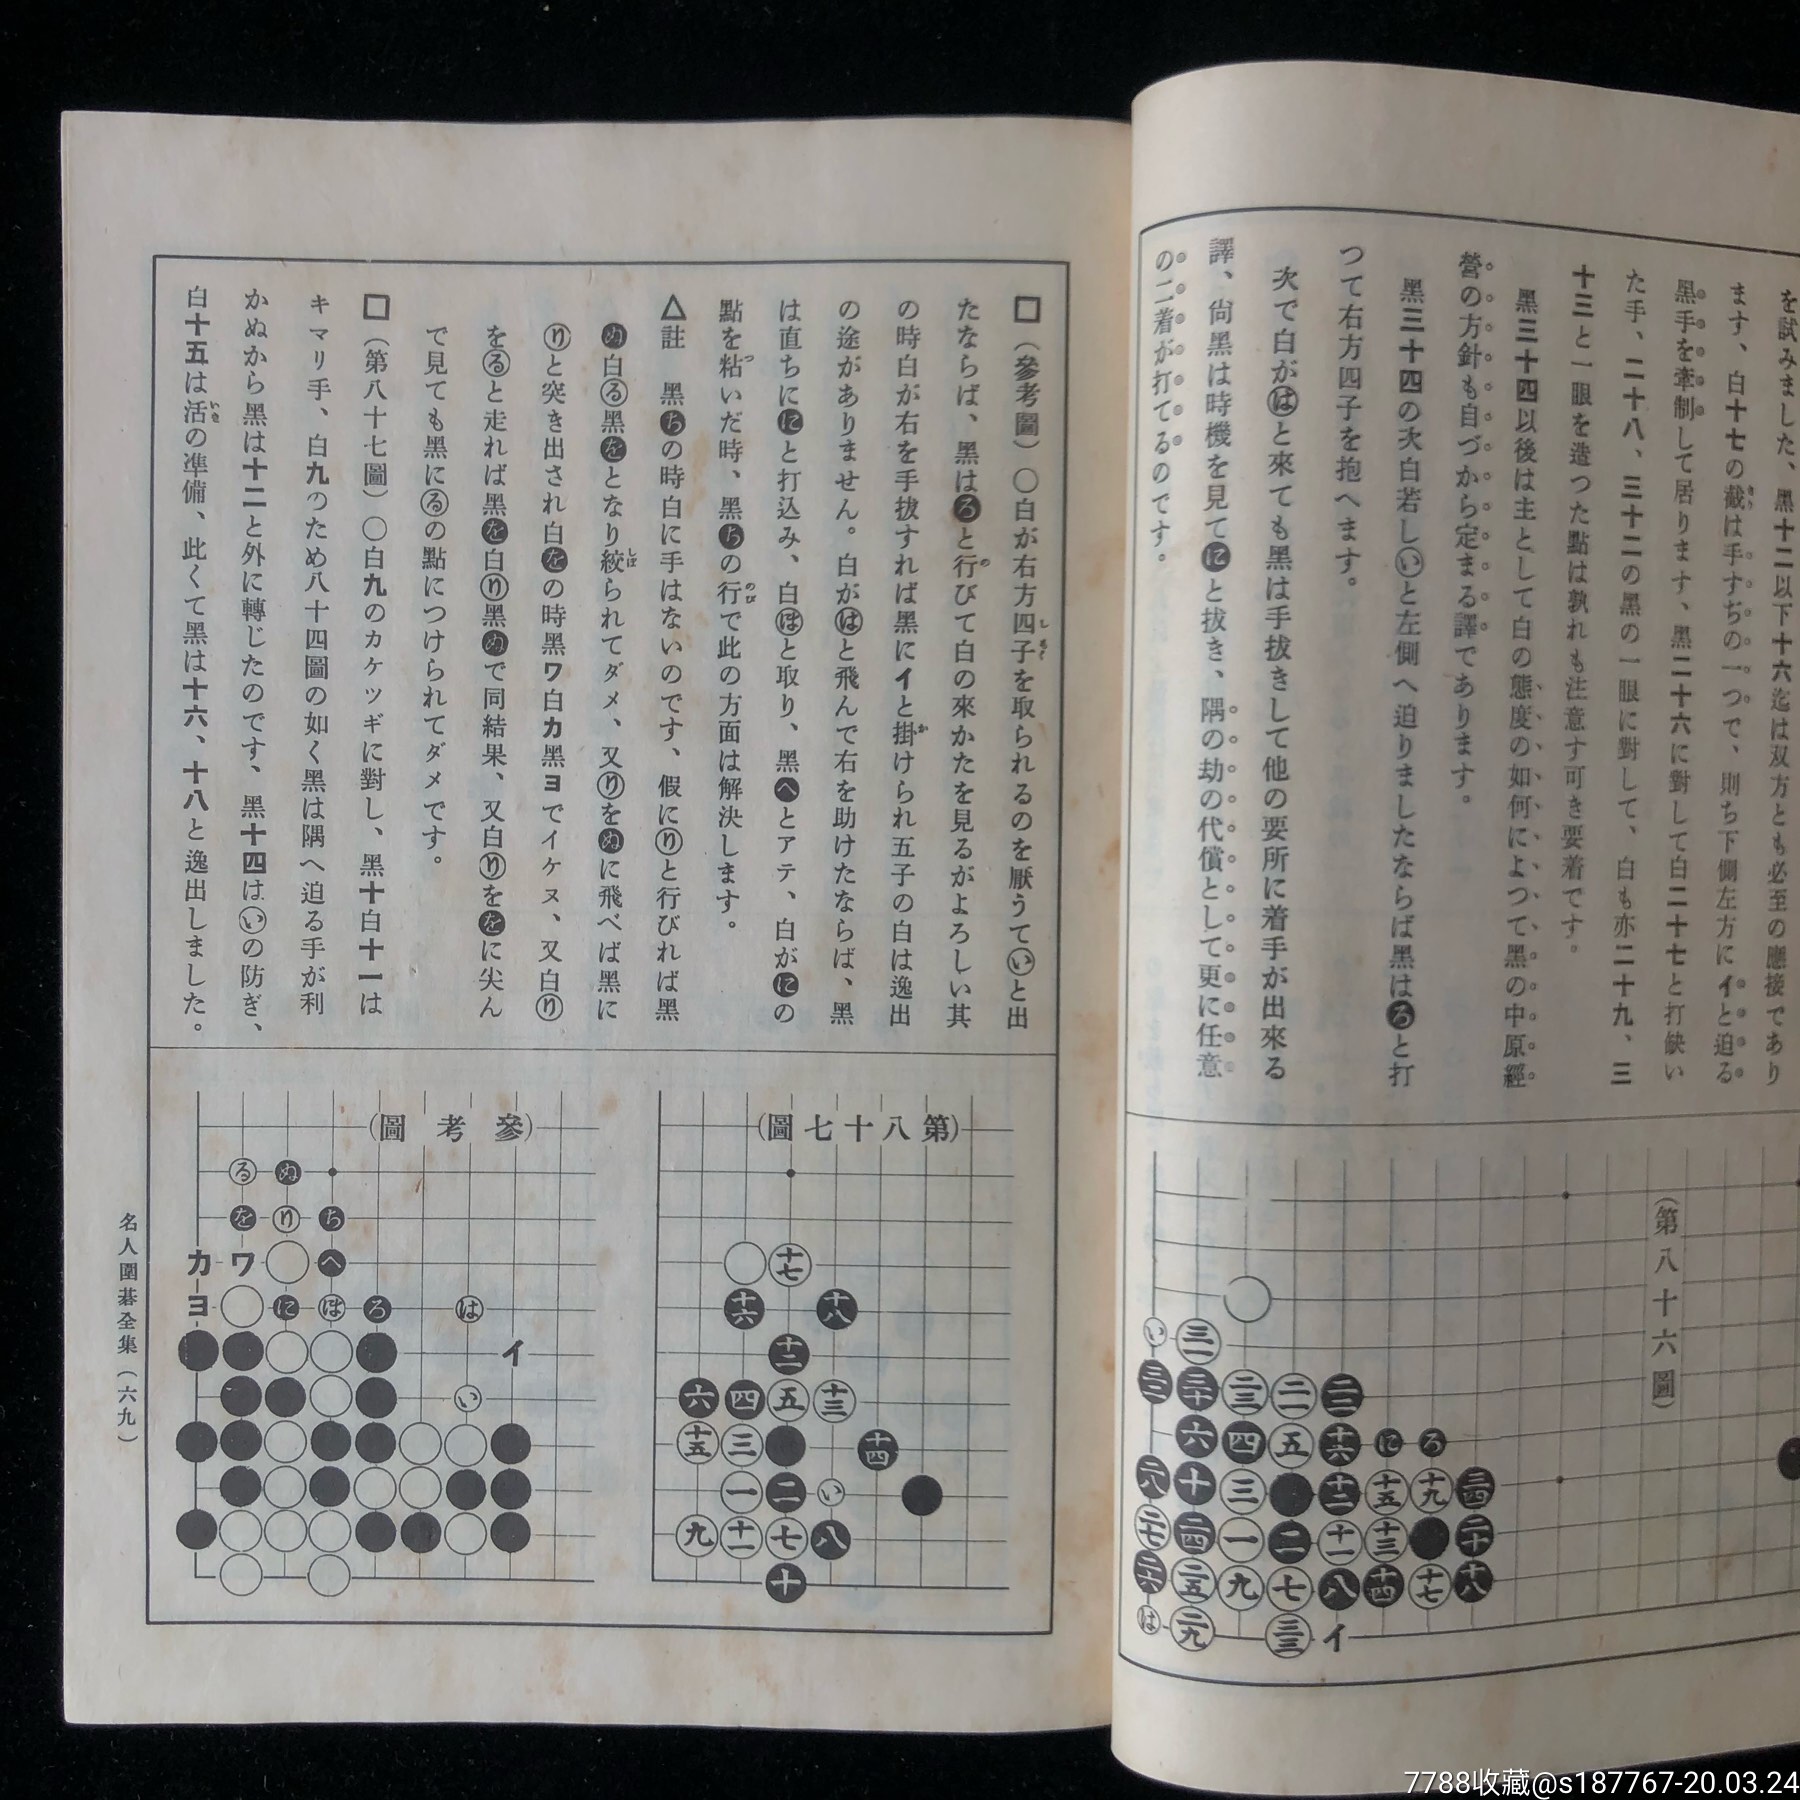 を試みました、黑十二以下十六迄は双方とも必至の應接であり
ます、白十七の截は手すぢの一つで、則ち下側左方にイと迫る
黑手を牽制して居ります、黑二十六に對して白二十七と打缺い
た手、二十八、三十二の黑の一眼に對して、白も亦二十九、三
十三と一眼を造つた點は孰れも注意す可き要着です。
黑三十四以後は主として白の態度の如何によつて、黑の中原經
營の方針も自づから定まる譯であります。
黑三十四の次白若しいと左側へ迫りましたならば黑はろと打
つて右方四子を抱へます。
次で白がはと來ても黑は手拔きして他の要所に着手が出來る
譯、尙黑は時機を見てにと拔き、隅の劫の代償として更に任意
の二着が打てるのです。
(第八十六圖)
□(參考圖)○白が右方四子を取られるのを厭うていと出
たならば、黑はろと行びて白の來かたを見るがよろしい其
の時白が右を手拔すれば黑にイと掛けられ五子の白は逸出
の途がありません。白がはと飛んで右を助けたならば、黑
は直ちににと打込み、白ほと取り、黑へとアテ、白がにの
點を粘いだ時、黑ちの行で此の方面は解決します。
△註 黑ちの時白に手はないのです、假にりと行びれば黑
ぬ白る黑をとなり絞られてダメ、又りをぬに飛べば黑に
りと突き出され白をの時黑ワ白カ黑ヨでイケヌ、又白り
をると走れば黑を白り黑ぬで同結果、又白りををに尖ん
で見ても黑にるの點につけられてダメです。
□(第八十七圖)○白九のカケツギに對し、黑十白十一は
キマリ手、白九のため八十四圖の如く黑は隅へ迫る手が利
かぬから黑は十二と外に轉じたのです、黑十四はいの防ぎ、
白十五は活の準備、此くて黑は十六、十八と逸出しました。
(第八十七圖)
(參考圖)
名人圍碁全集(六九)
7788收藏@s187767-20.03.24